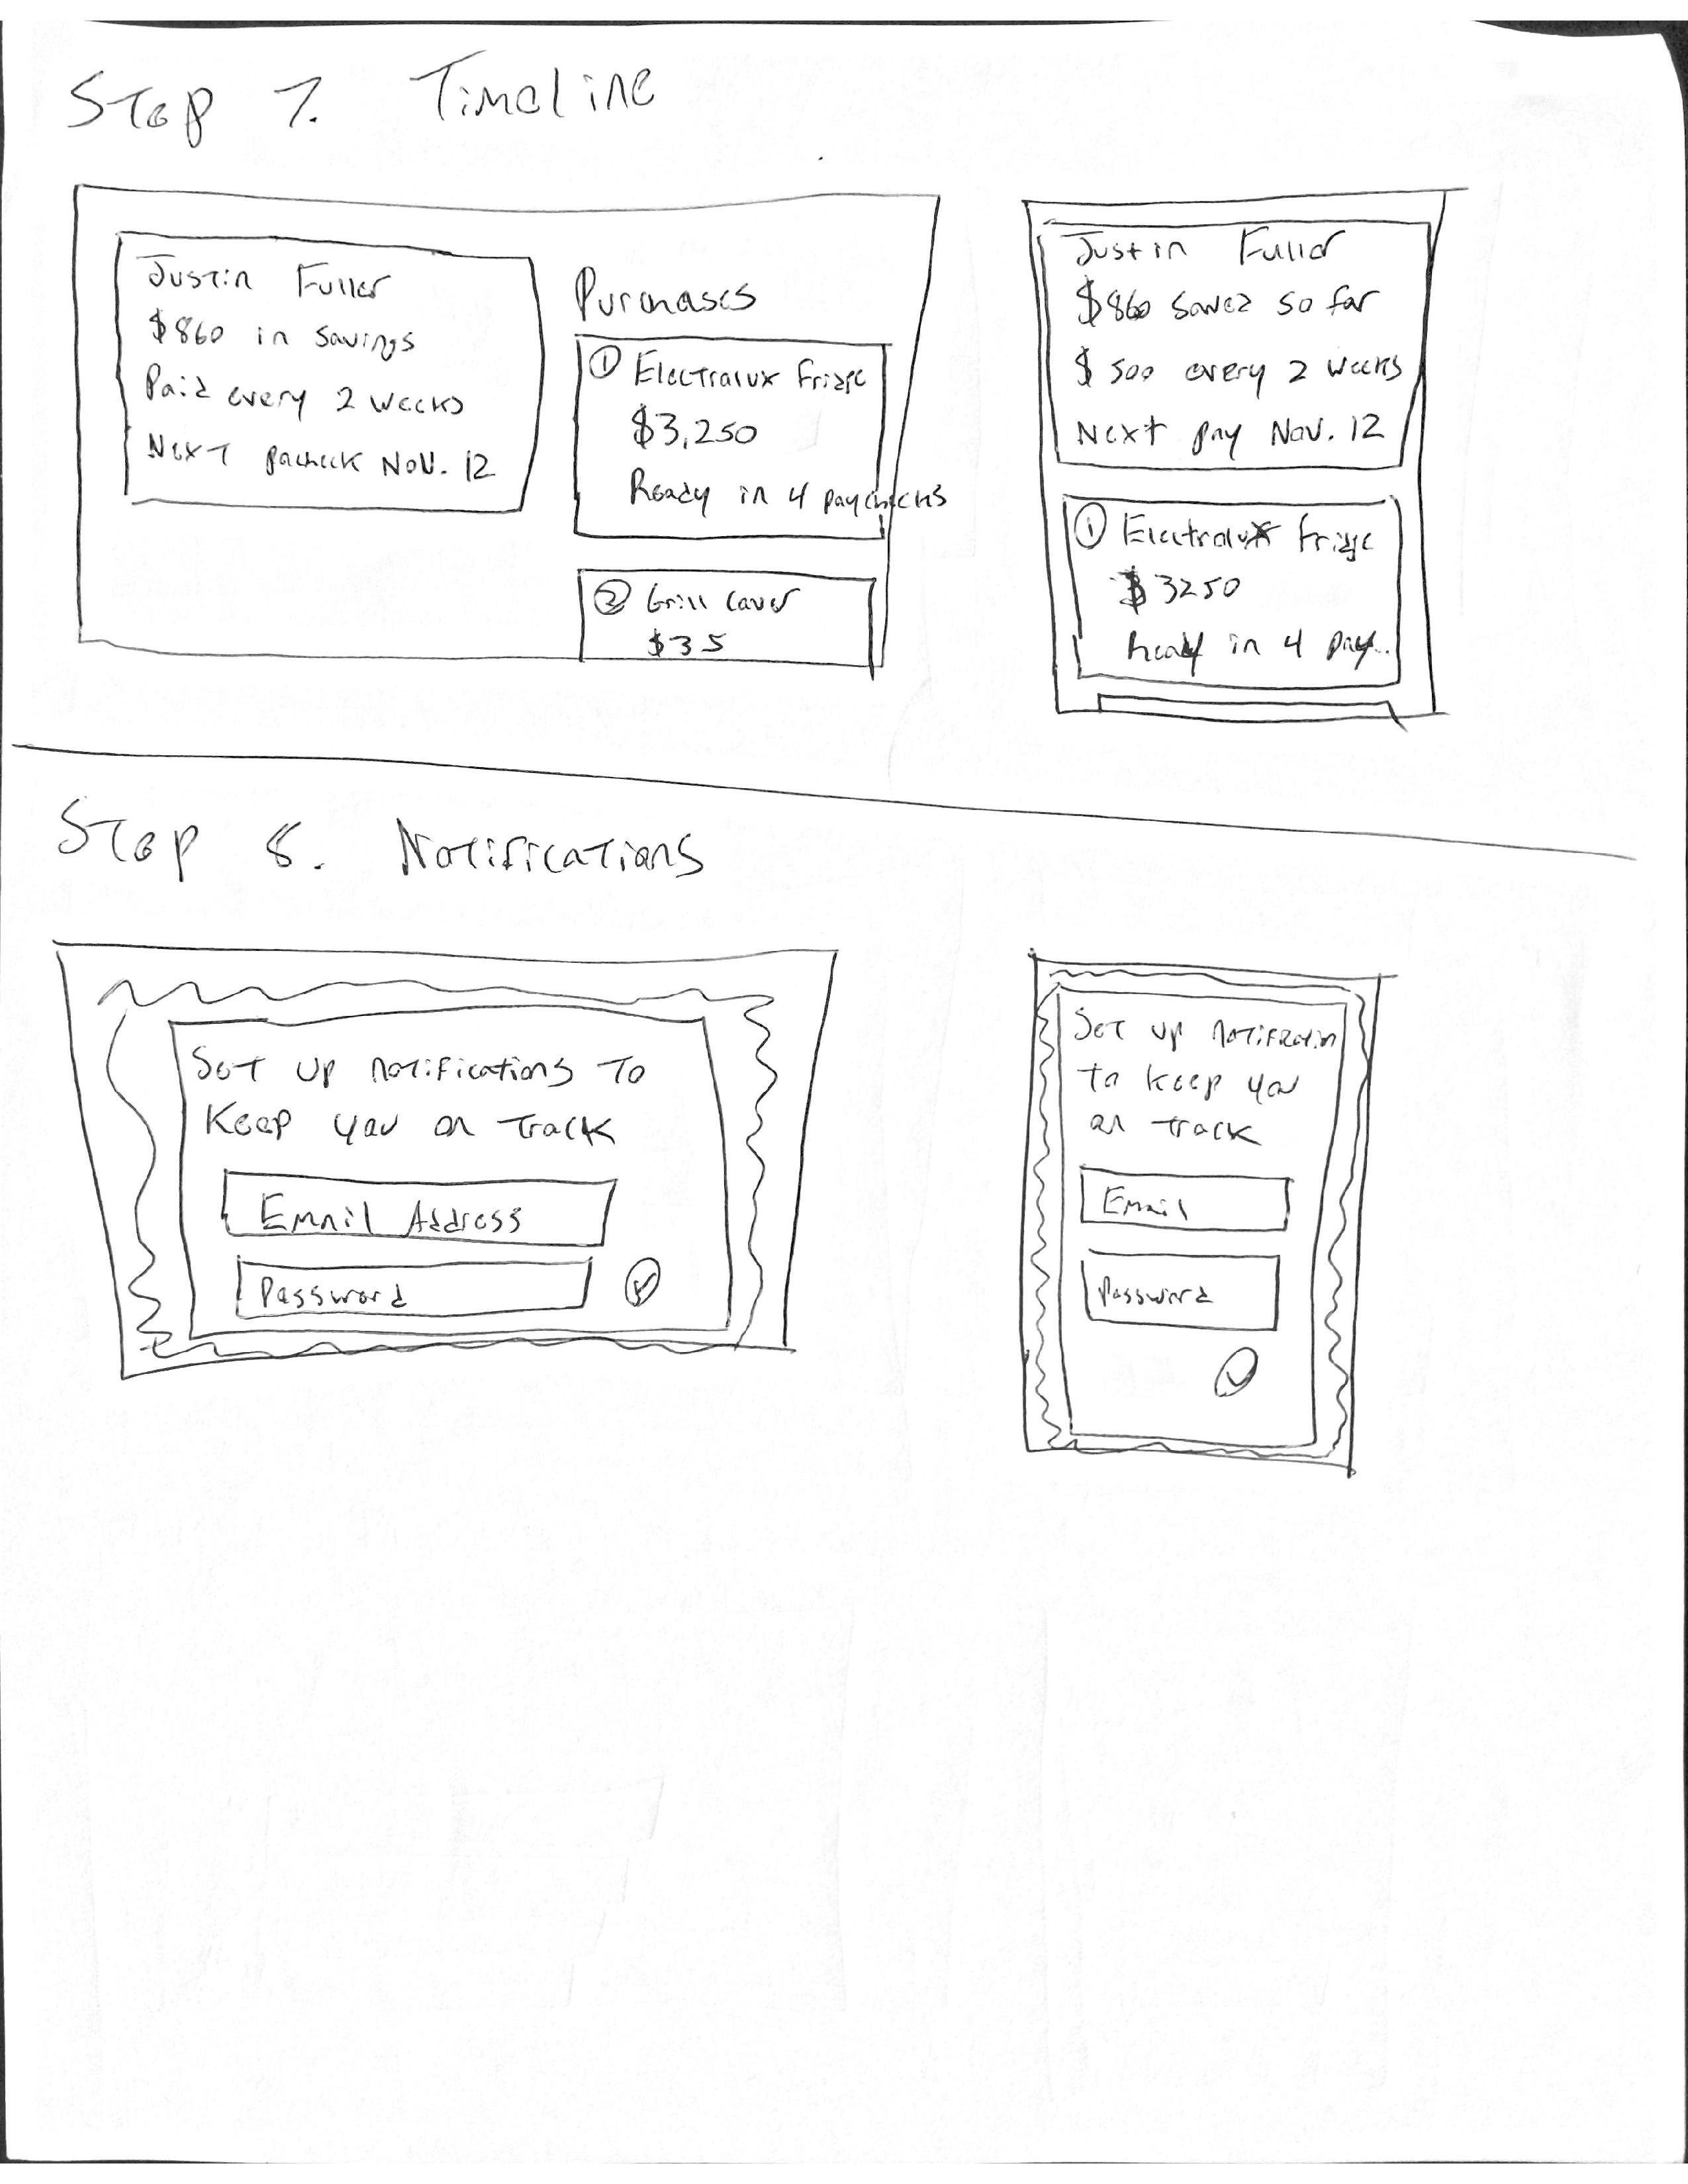 Step 7. Timeline
Justin Fuller
$860 in savings
Paid every 2 weeks
Next pacheck Nov. 12
Purchases
① Electralux fridge
$3,250
Ready in 4 paychecks
② Grill cover
$35
Justin Fuller
$860 saved so far
$500 every 2 weeks
Next pay Nov. 12
① Electralux fridge
$3250
Ready in 4 pay..
Step 8. Notifications
Set up notifications to
keep you on track
Email Address
Password
Set up notification
to keep you
on track
Email
Password